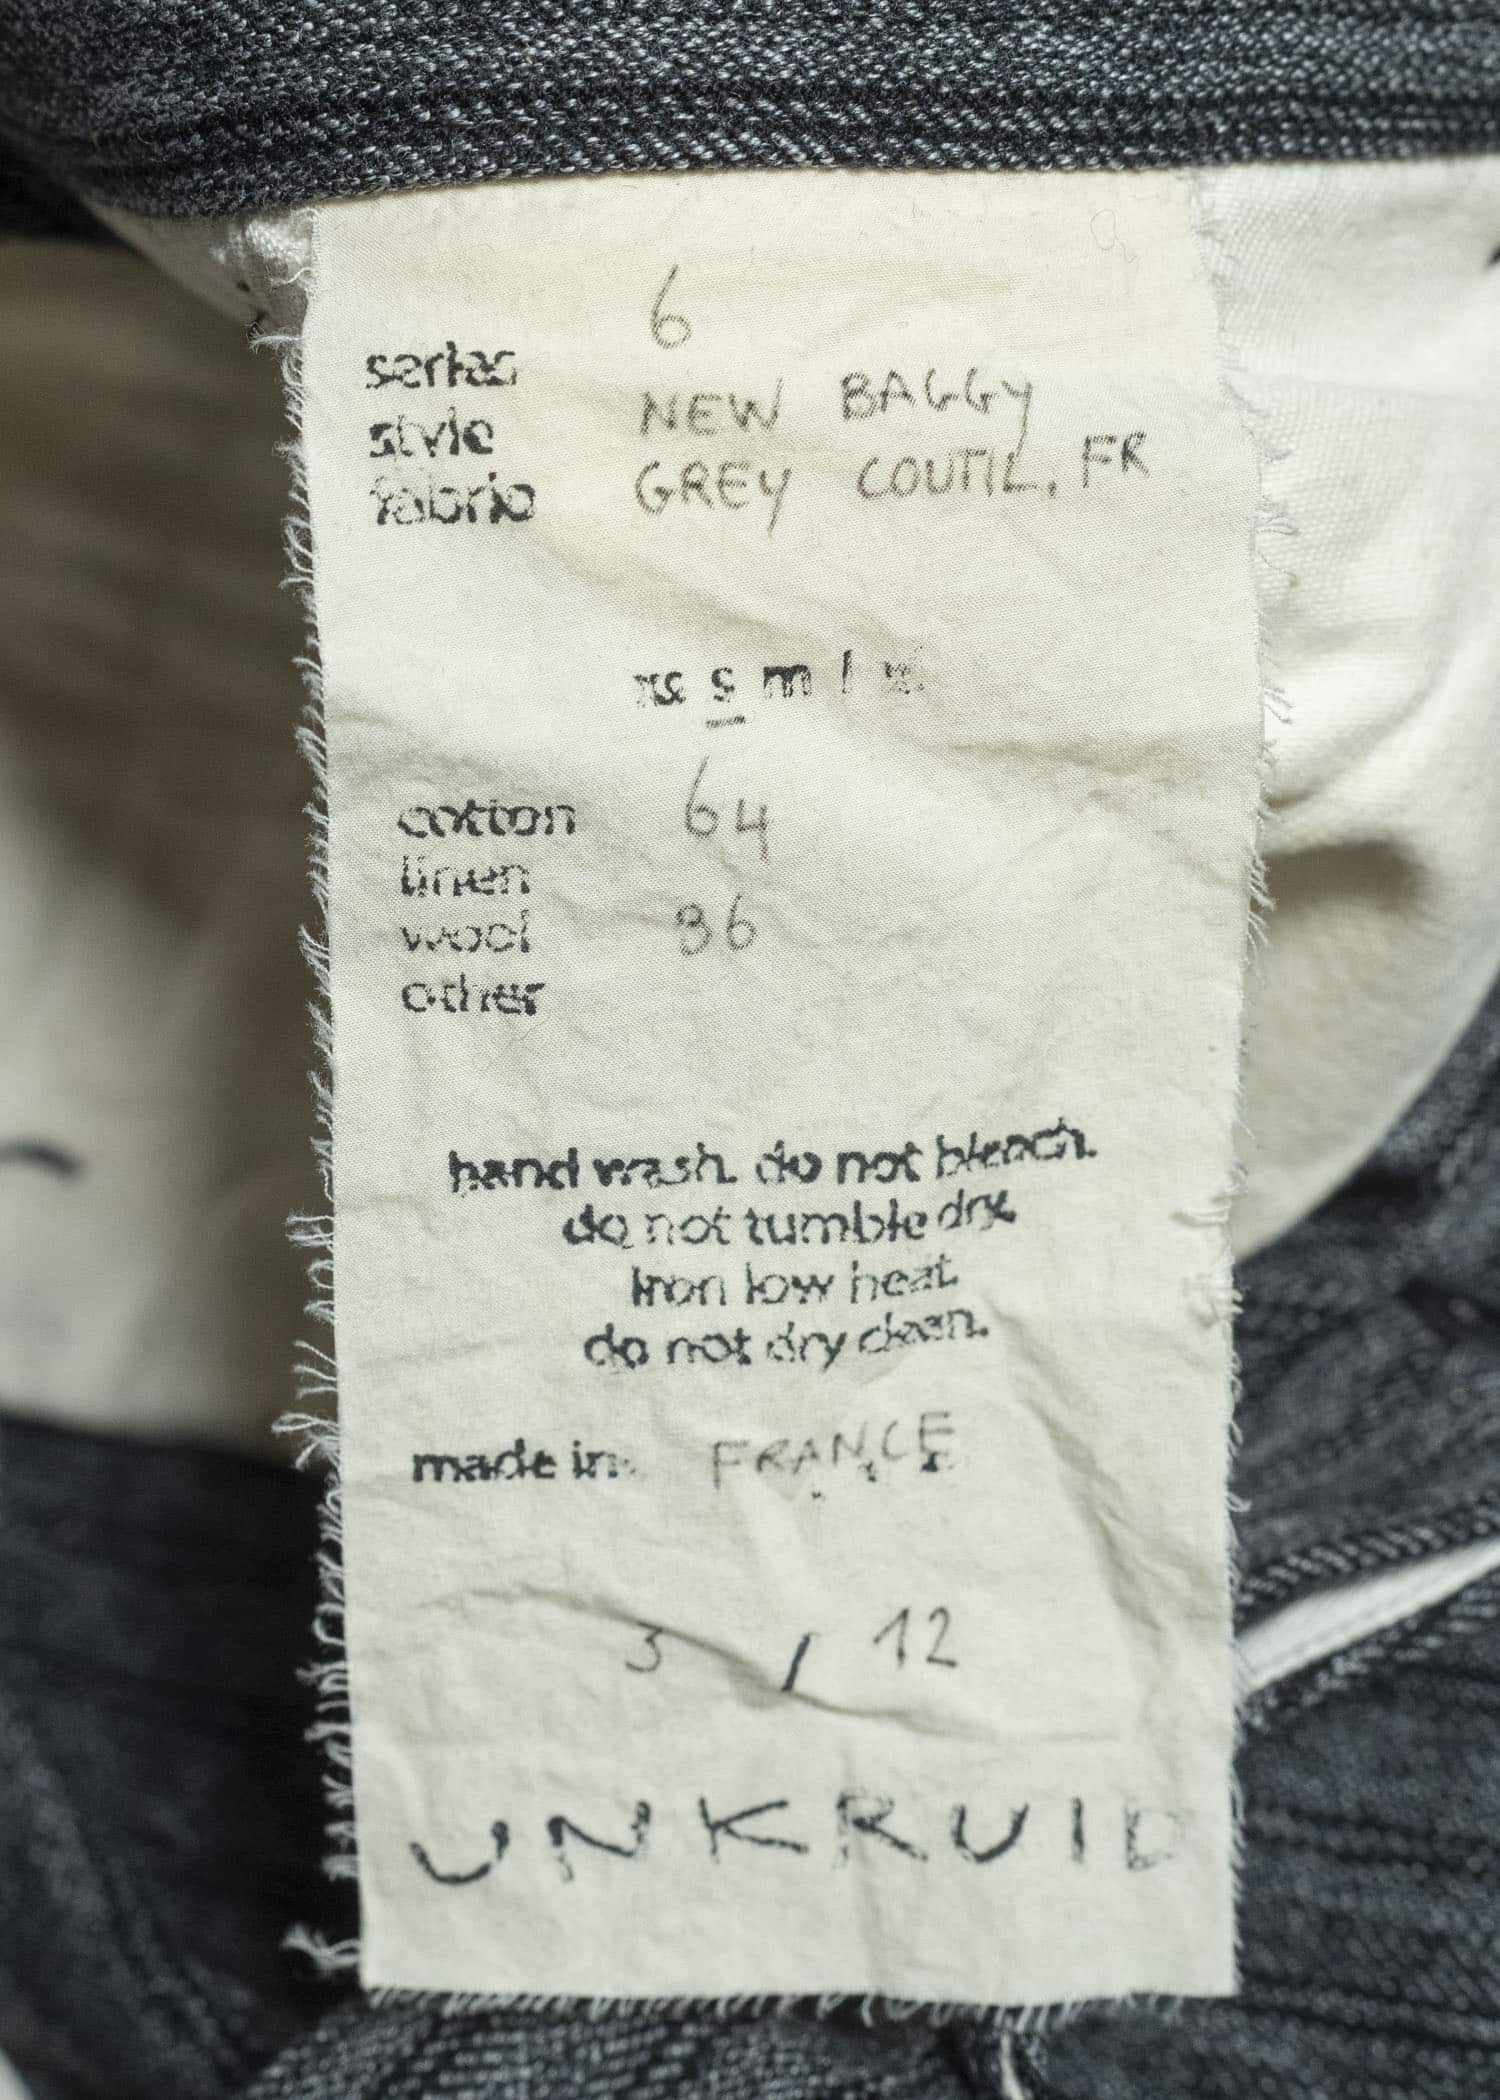 series 6
style NEW BAGGY
fabric GREY COUTIL, FR
xs s m l xl
cotton 64
linen
wool 36
other
hand wash. do not bleach.
do not tumble dry.
iron low heat.
do not dry clean.
made in: FRANCE
3 / 12
UNKRUID